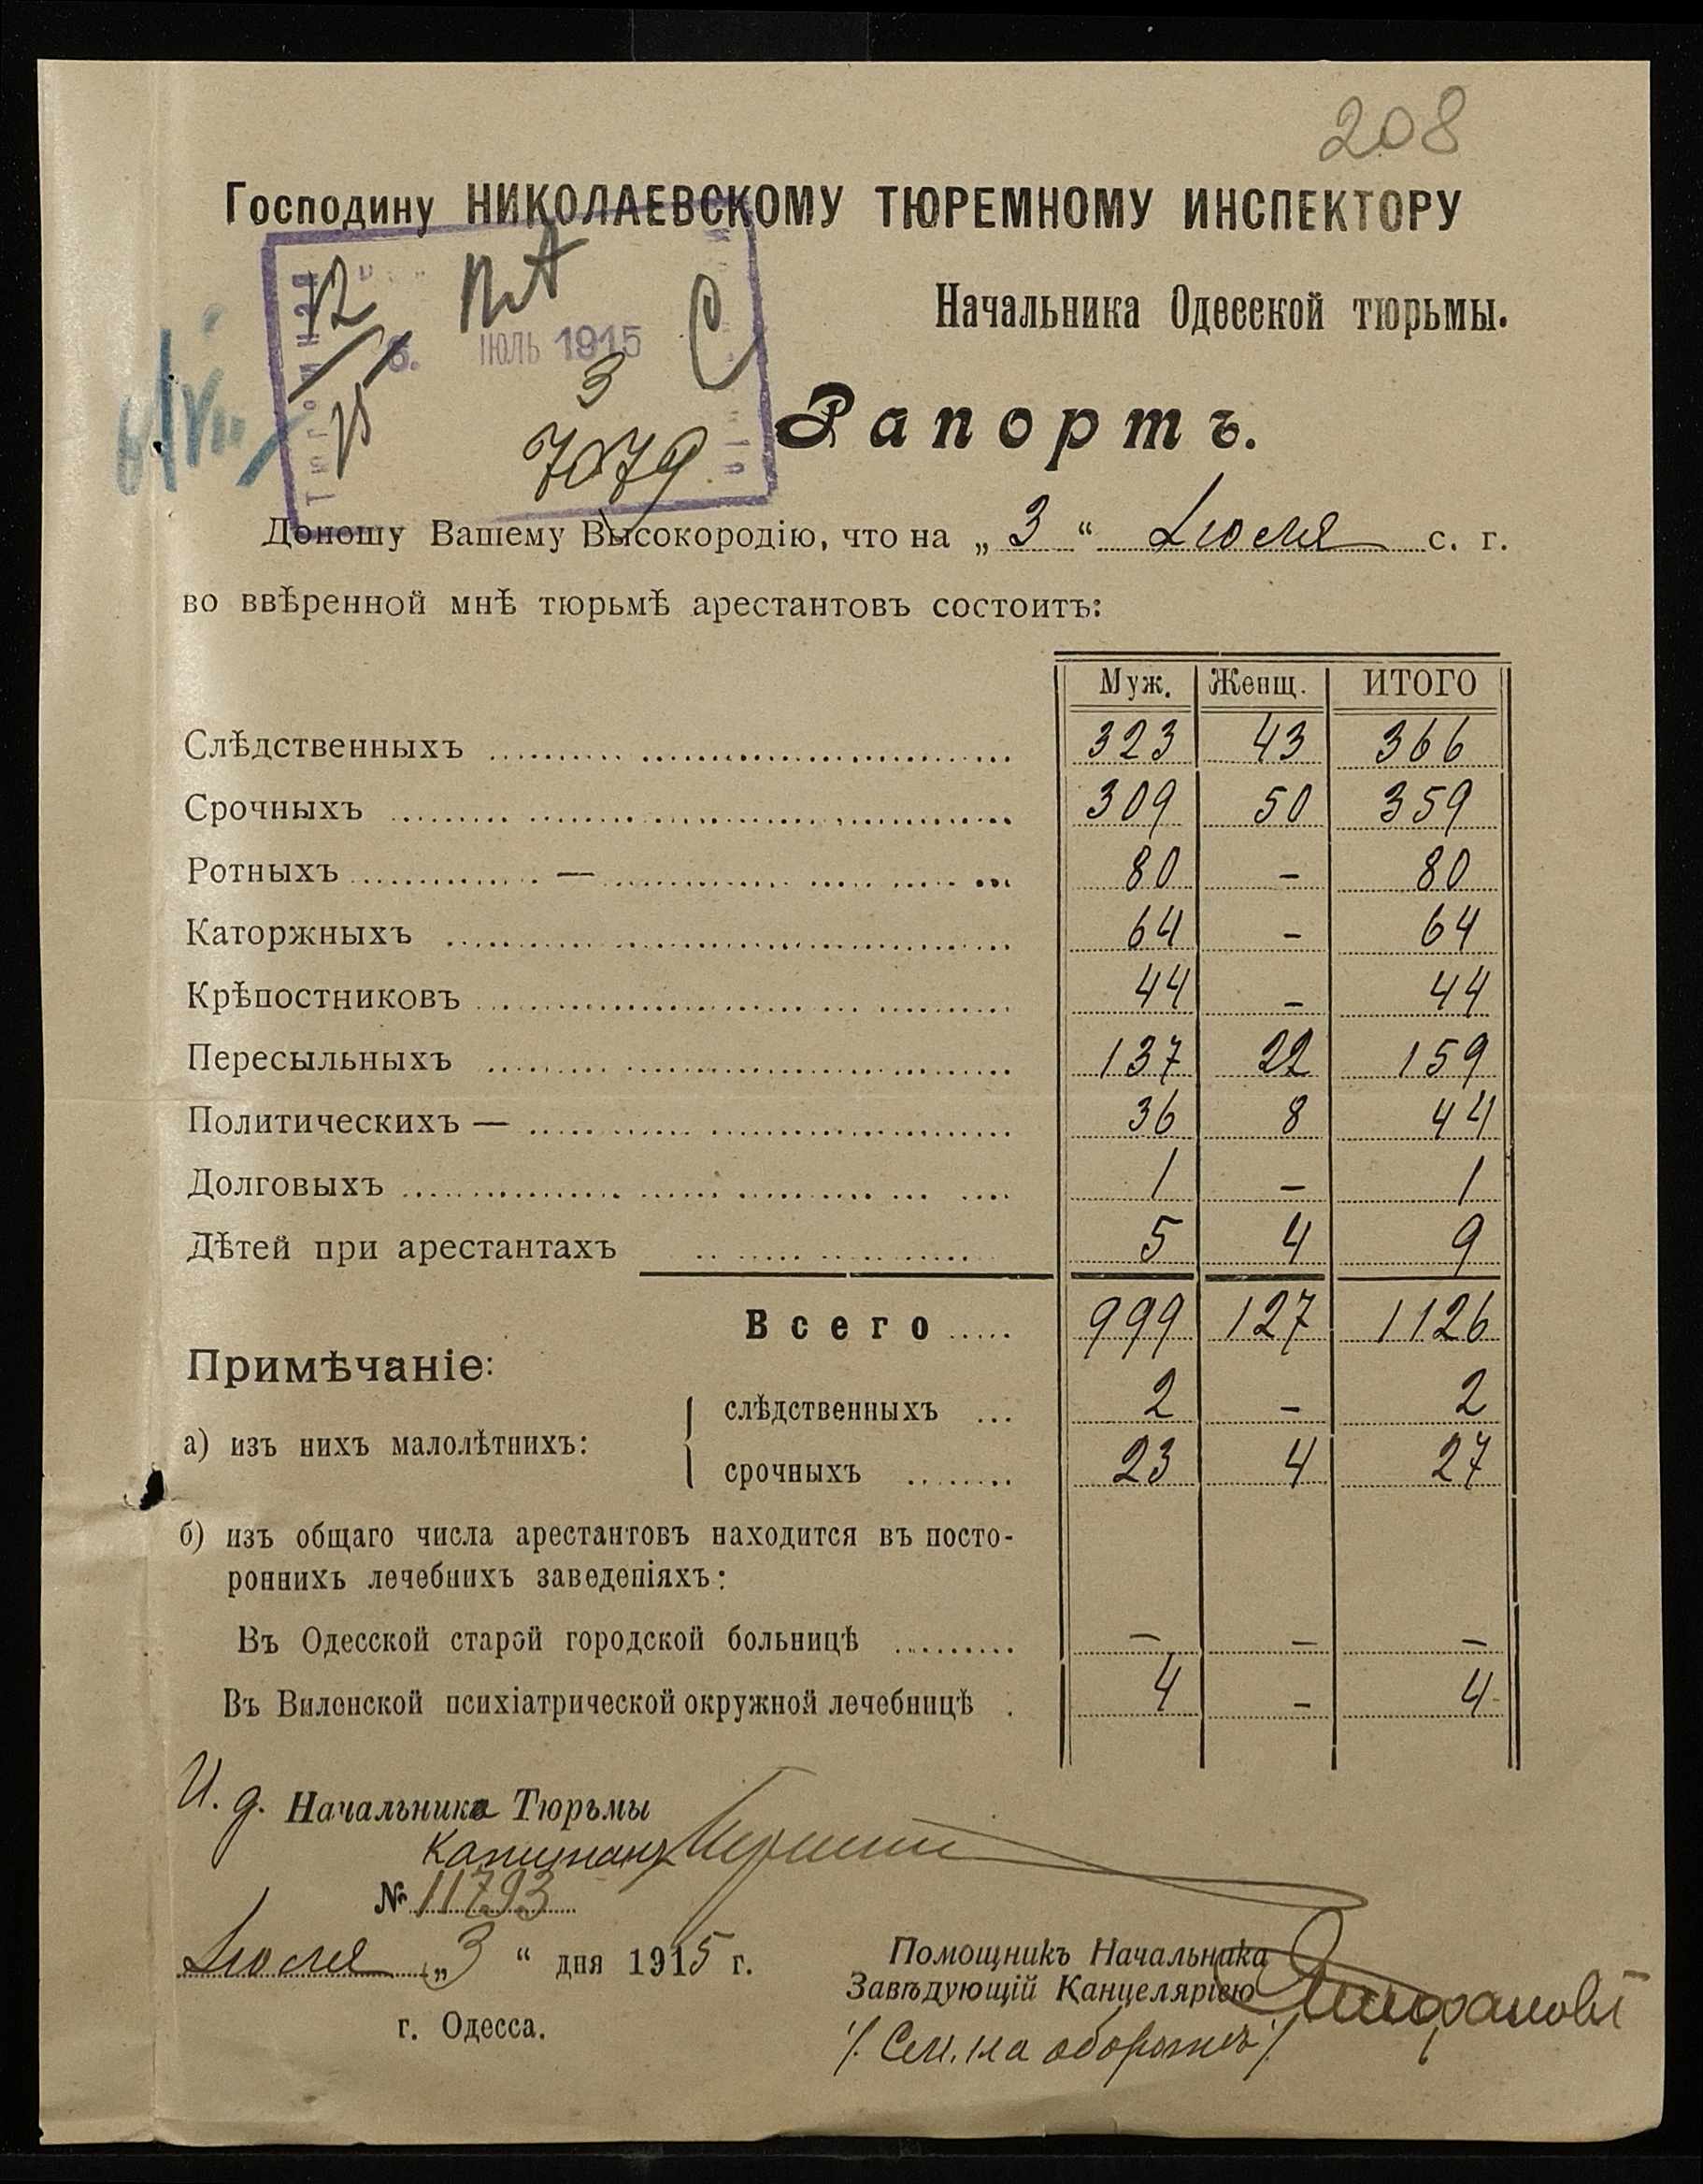 208
Господину НИКОЛАЕВСКОМУ ТЮРЕМНОМУ ИНСПЕКТОРУ
Начальника Одесской тюрьмы.
6. ІЮЛЬ 1915
3
7079
Рапортъ.
Доношу Вашему Высокородію, что на „3“ Іюля с. г.
во ввѣренной мнѣ тюрьмѣ арестантовъ состоитъ:
Муж. Женщ. ИТОГО
Слѣдственныхъ 323 43 366
Срочныхъ 309 50 359
Ротныхъ — 80 - 80
Каторжныхъ 64 - 64
Крѣпостниковъ 44 - 44
Пересыльныхъ 137 22 159
Политическихъ — 36 8 44
Долговыхъ 1 - 1
Дѣтей при арестантахъ 5 4 9
Всего 999 127 1126
Примѣчаніе:
а) изъ нихъ малолѣтнихъ:
слѣдственныхъ 2 - 2
срочныхъ 23 4 27
б) изъ общаго числа арестантовъ находится въ посто-
роннихъ лечебнихъ заведеніяхъ:
Въ Одесской старой городской больницѣ - - -
Въ Виленской психіатрической окружной лечебницѣ 4 - 4
И. д. Начальника Тюрьмы
Капитанъ
№ 11793
Іюля „3“ дня 1915 г.
г. Одесса.
Помощникъ Начальника
Завѣдующій Канцеляріею
/. См. на оборотѣ /.